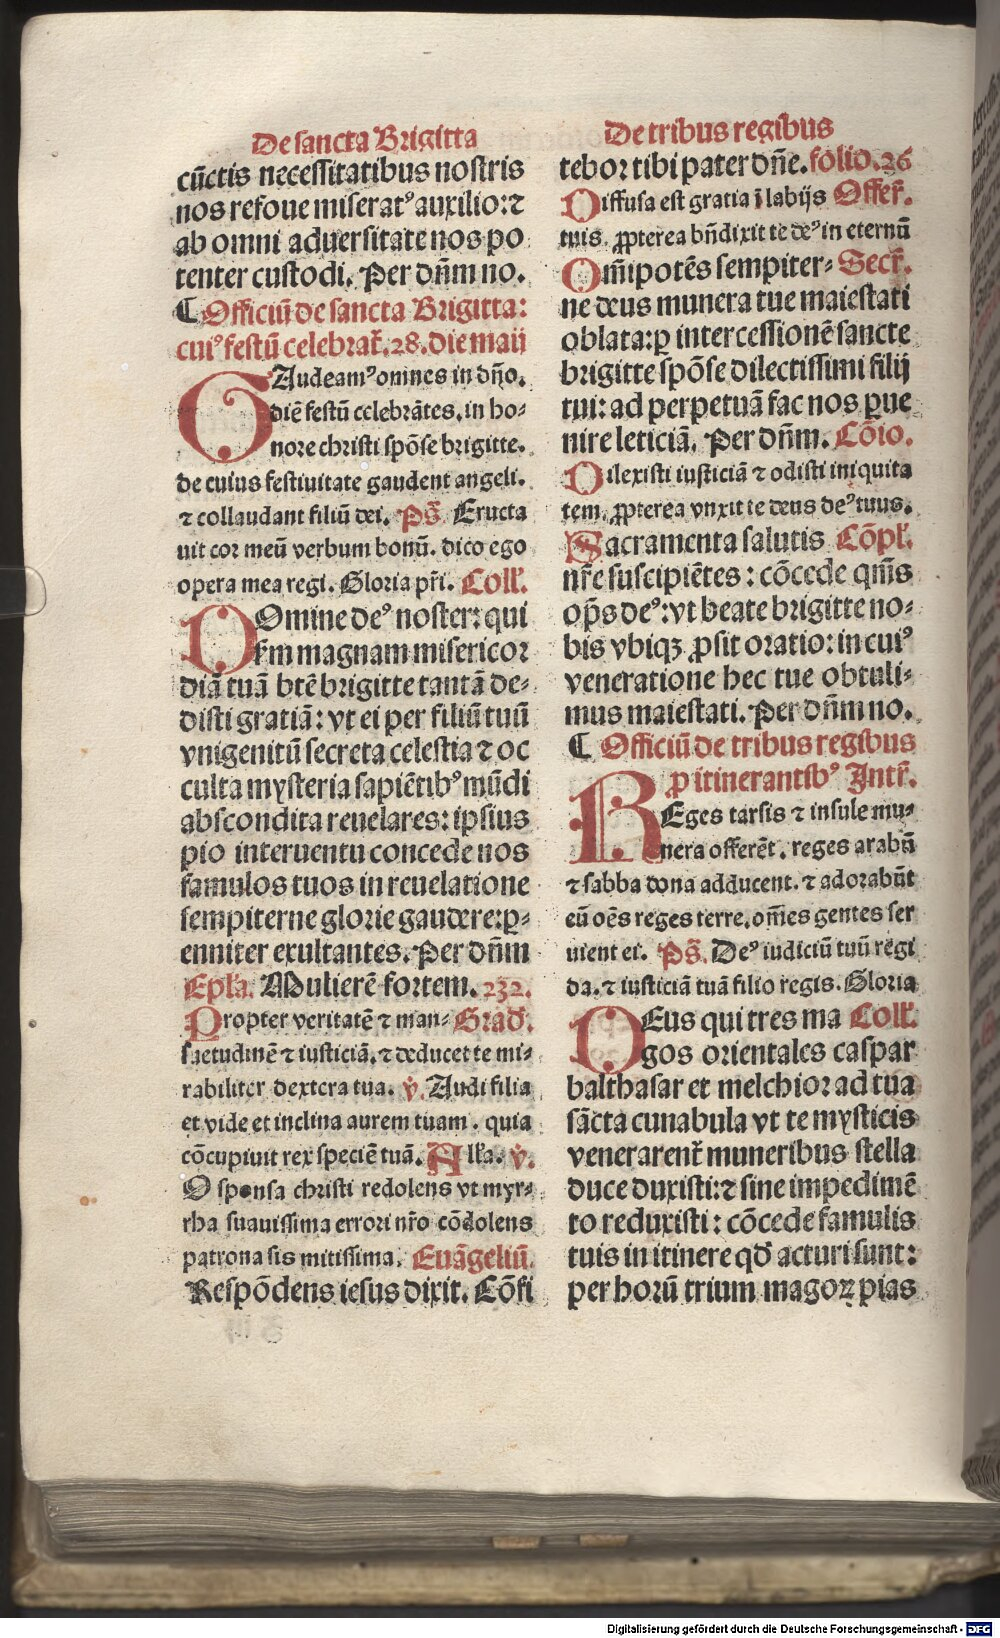 De sancta Brigitta
cūctis necessitatibus nostris
nos refoue miseratꝰ auxilio: ⁊
ab omni aduersitate nos po
tenter custodi. Per dn̄m no.
¶ Officiū de sancta Brigitta:
cuiꝰ festū celebrat̄. 28. die maij
GAudeamꝰ omnes in dn̄o.
diē festū celebrātes. in ho-
nore christi spōse brigitte.
de cuius festiuitate gaudent angeli.
⁊ collaudant filiū dei. Ps̄. Eructa
uit cor meū verbum bonū. dico ego
opera mea regi. Gloria pr̄i. Coll'.
DOmine deꝰ noster: qui
s'm magnam misericor
diā tuā btē brigitte tantā de-
disti gratiā: vt ei per filiū tuū
vnigenitū secreta celestia ⁊ oc
culta mysteria sapiētibꝰ mūdi
abscondita reuelares: ipsius
pio interuentu concede nos
famulos tuos in reuelatione
sempiterne glorie gaudere: ꝑ-
enniter exultantes. Per dn̄m
Epl'a. Mulierē fortem. 232.
Propter veritatē ⁊ man- Grad'.
suetudinē ⁊ iusticiā. ⁊ deducet te mi-
rabiliter dextera tua. v̄. Audi filia
et vide et inclina aurem tuam. quia
cōcupiuit rex speciē tuā. All'a. v̄.
O sponsa christi redolens vt myr-
rha suauissima errori nr̄o cōdolens
patrona sis mitissima. Euāgeliū.
Respōdens iesus dixit. Cōfi
De tribus regibus
tebor tibi pater dn̄e. folio. 26
Diffusa est gratia ī labijs Offer̄.
tuis. ꝓpterea bn̄dixit te deꝰ in eternū
Om̄ipotēs sempiter- Secr̄.
ne deus munera tue maiestati
oblata: ꝑ intercessionē sancte
brigitte spōse dilectissimi filij
tui: ad perpetuā fac nos ꝑue
nire leticiā. Per dn̄m. Cōio.
Dilexisti iusticiā ⁊ odisti iniquita
tem. ꝓpterea vnxit te deus deꝰ tuus.
Sacramenta salutis Cōpl'.
nr̄e suscipiētes: cōcede qm̄s
op̄s deꝰ: vt beate brigitte no-
bis vbiqꝫ ꝓsit oratio: in cuiꝰ
veneratione hec tue obtuli-
mus maiestati. Per dn̄m no.
¶ Officiū de tribus regibus
ꝓ itinerantibꝰ Intr̄.
REges tarsis ⁊ insule mu-
nera offerēt. reges arabū
⁊ sabba dona adducent. ⁊ adorabūt
eū oēs reges terre. om̄es gentes ser
uient ei. Ps̄. Deꝰ iudiciū tuū regi
da. ⁊ iusticiā tuā filio regis. Gloria
DEus qui tres ma Coll'.
gos orientales caspar
balthasar et melchior ad tua
sācta cunabula vt te mysticis
venerarent̄ muneribus stella
duce duxisti: ⁊ sine impedimē
to reduxisti: cōcede famulis
tuis in itinere qd' acturi sunt:
per horū trium magoꝝ pias
Digitalisierung gefördert durch die Deutsche Forschungsgemeinschaft - DFG